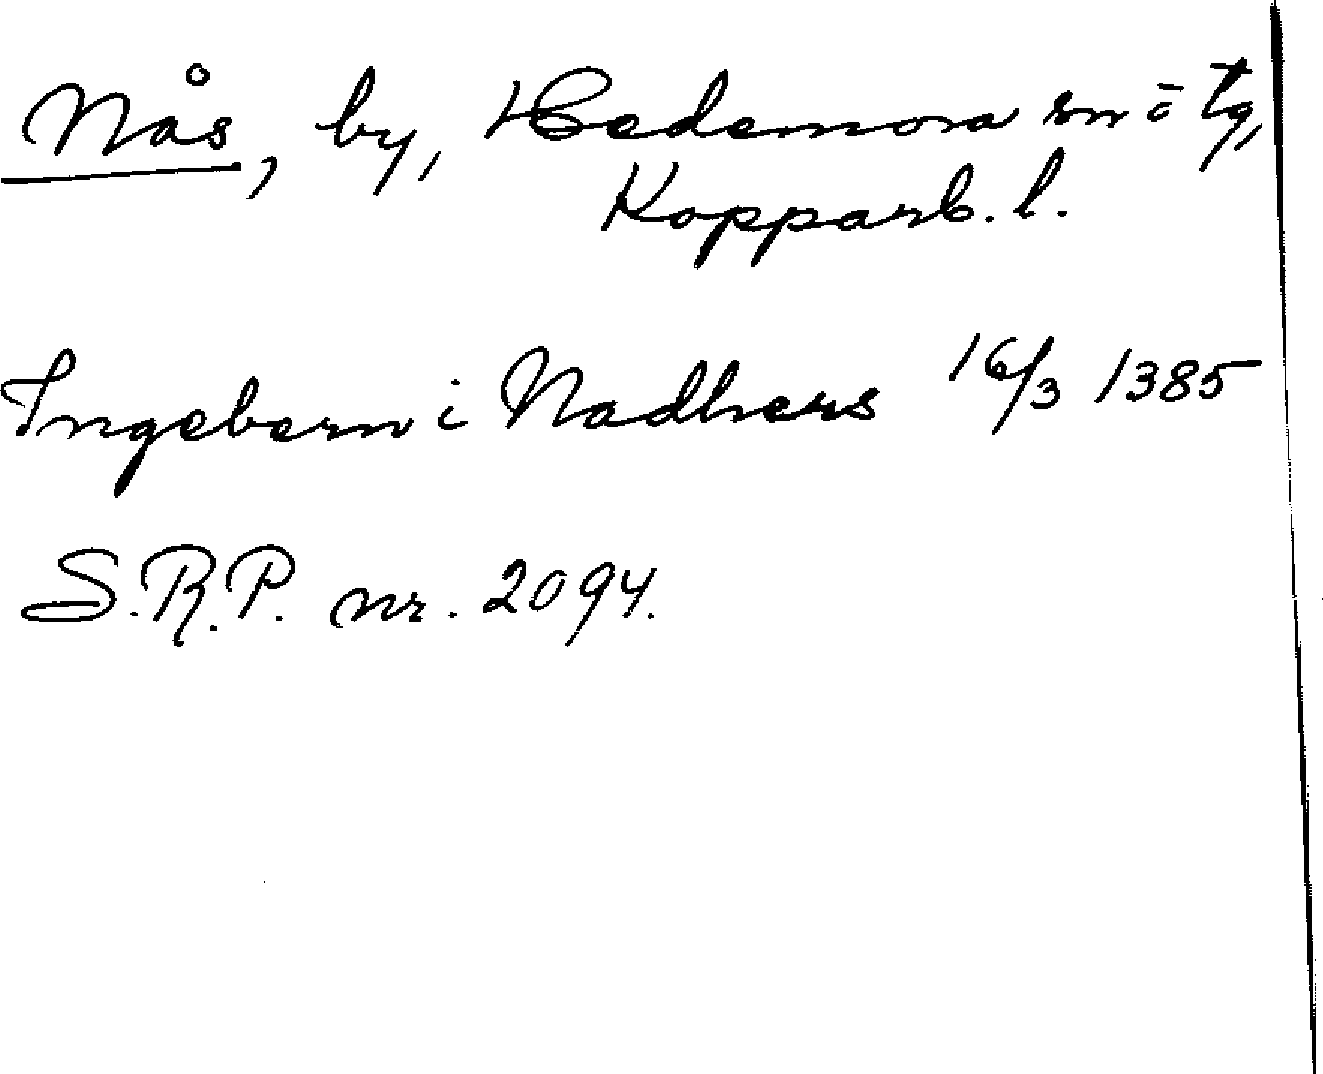 Nås, by, Hedemora sn o tg,
Kopparb. l.
Ingebern i Nadhers 16/3 1385
S.R.P. nr. 2094.